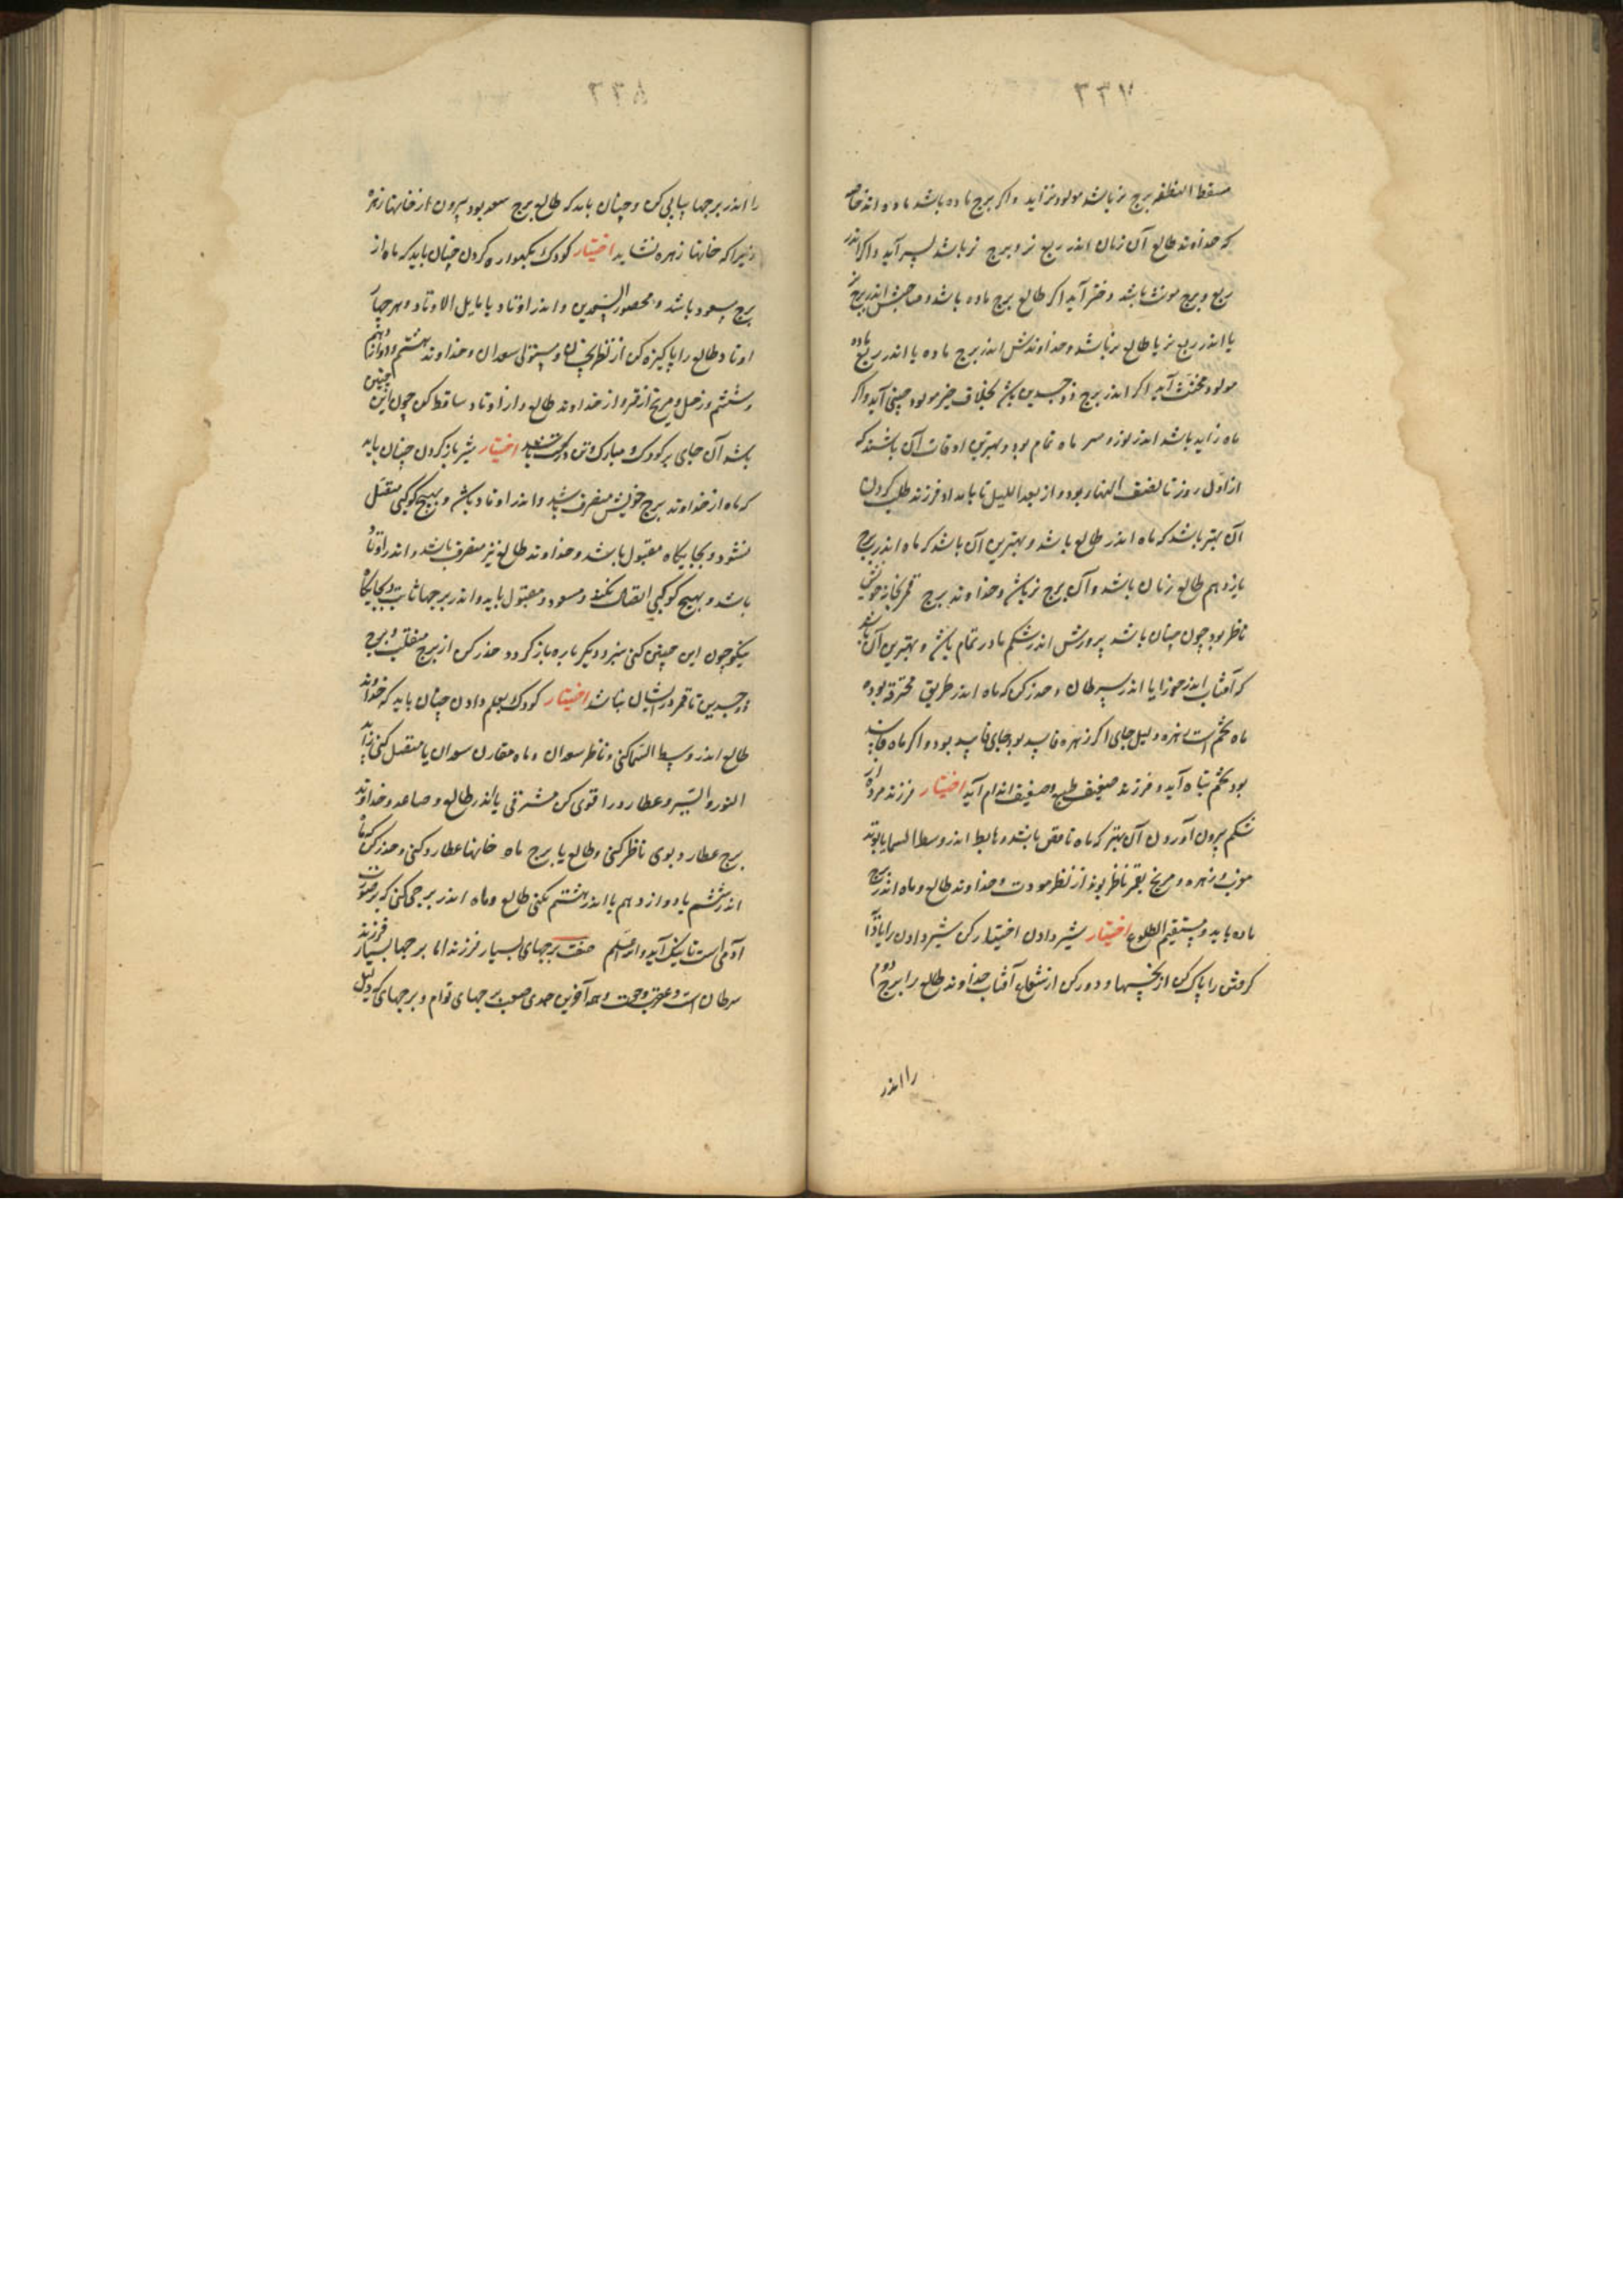 ۳۳۷
مسقط النطفه برج نر باشد مولود نر آید و اکر برج ماده باشد ماده اند خاصه
که خداوند طالع آن زمان اندر ربع نر و برج نر باشد پسر آید و اکر اندر
ربع و برج مونث باشد دختر آید اکر طالع برج ماده باشد و صاحبش اندر برج نر
یا اندر ربع نر یا طالع نر باشد و خداوندش اندر برج ماده یا اندر ربع ماده
مولود مخنث آید اکر اندر برج ذوجسدین باشد بخلاف خبر مولود چنین آید و اکر
ماه زاید باشد اندر نور و سر ماه تمام بود و بهترین اوقات آن باشند که
از اول روز تا نصف النهار بود و از بعد اللیل تا بامداد فرزند طلب کردن
آن بهتر باشد که ماه اندر طالع باشد و بهترین آن باشد که ماه اندر برج
یازدهم طالع زنان باشد و آن برج نر باشد و خداوند برج قمر بخانه خویش
ناظر بود چون چنان باشد پرورش اندر شکم مادر تمام باشد و بهترین آن باشد
که آفتاب اندر جوزا یا اندر سرطان و حذر کن که ماه اندر طریق محترقه بود
ماه تخم است زهره دلیل جای اکر زهره فاسد بود جای فاسد بود و اکر ماه فاسد
بود تخم تباه آید و فرزند ضعیف طبع و ضعیف اندام آید اختیار فرزند مرده از
شکم بیرون آوردن آن بهتر که ماه ناقص باشد و هابط اندر وسط السما یا بوتد
مونث و زهره و مریخ بقمر ناظر بوند از نظر مودت و خداوند طالع و ماه اندر برج
ماده باید و مستقیم الطلوع اختیار شیر دادن اختیار کن شیر دادن را یا باز
کرفتن را پاک کن از نحسها و دور کن از شعاع آفتاب خداوند طالع را برج دوم
را اندر
۳۳۸
را اندر برجها پیاپی کن و چنان باید که طالع برج سعد بود بیرون از خانهها زهره
زیرا که خانهها زهره نشاید اختیار کودک بکهواره کردن چنان باید که ماه از
برج مسعود باشد و محصور السعدین و اندر اوتاد یا مایل الاوتاد و هر چهار
اوتاد طالع را پاکیزه کن از نظر نحسان و مستولی سعدان و خداوند هشتم و دوازدهم
و ششم و زحل و مریخ از قمر و از خداوند طالع و از اوتاد ساقط کن چون این چنین
باشد آن جای بر کودک مبارک و تن درست باشد اختیار شیر باز کردن چنان باید
که ماه از خداوند برج خویش منصرف باشد و اندر اوتاد باشد و بهیچ کوکبی متصل
نشود و بجایکاه مقبول باشد و خداوند طالع نیز منصرف باشد و اندر اوتاد
باشد و بهیچ کوکبی اتصال نکند و مسعود و مقبول باید و اندر برجها ثابت و جایکاه
نیکو چون این چنین کنی شیر و دیکر باره باز کردد حذر کن از برج منقلب و برج
ذوجسدین تا قمر در ایشان نباشد اختیار کودک بعلم دادن چنان باید که خداوند
طالع اندر وسط السما کنی و ناظر سعدان و ماه مقارن سعدان یا متصل کنی زاید
النور و السیر و عطارد را قوی کن مشرقی یا اندر طالع و صاعد و خداوند
برج عطارد بوی ناظر کنی و طالع یا برج ماه خانهها عطارد کنی و حذر کن که ماه
اندر ششم یا دوازدهم یا اندر هشتم نکنی طالع و ماه اندر برجی کنی که بر صورت
آدمی است تا نیک آید و الله اعلم صفت برجهای بسیار فرزند اما برجها بسیار فرزند
سرطان است و عقرب و حوت و همه آخرین جدی صفت برجهای توام و برجهای که دلیل